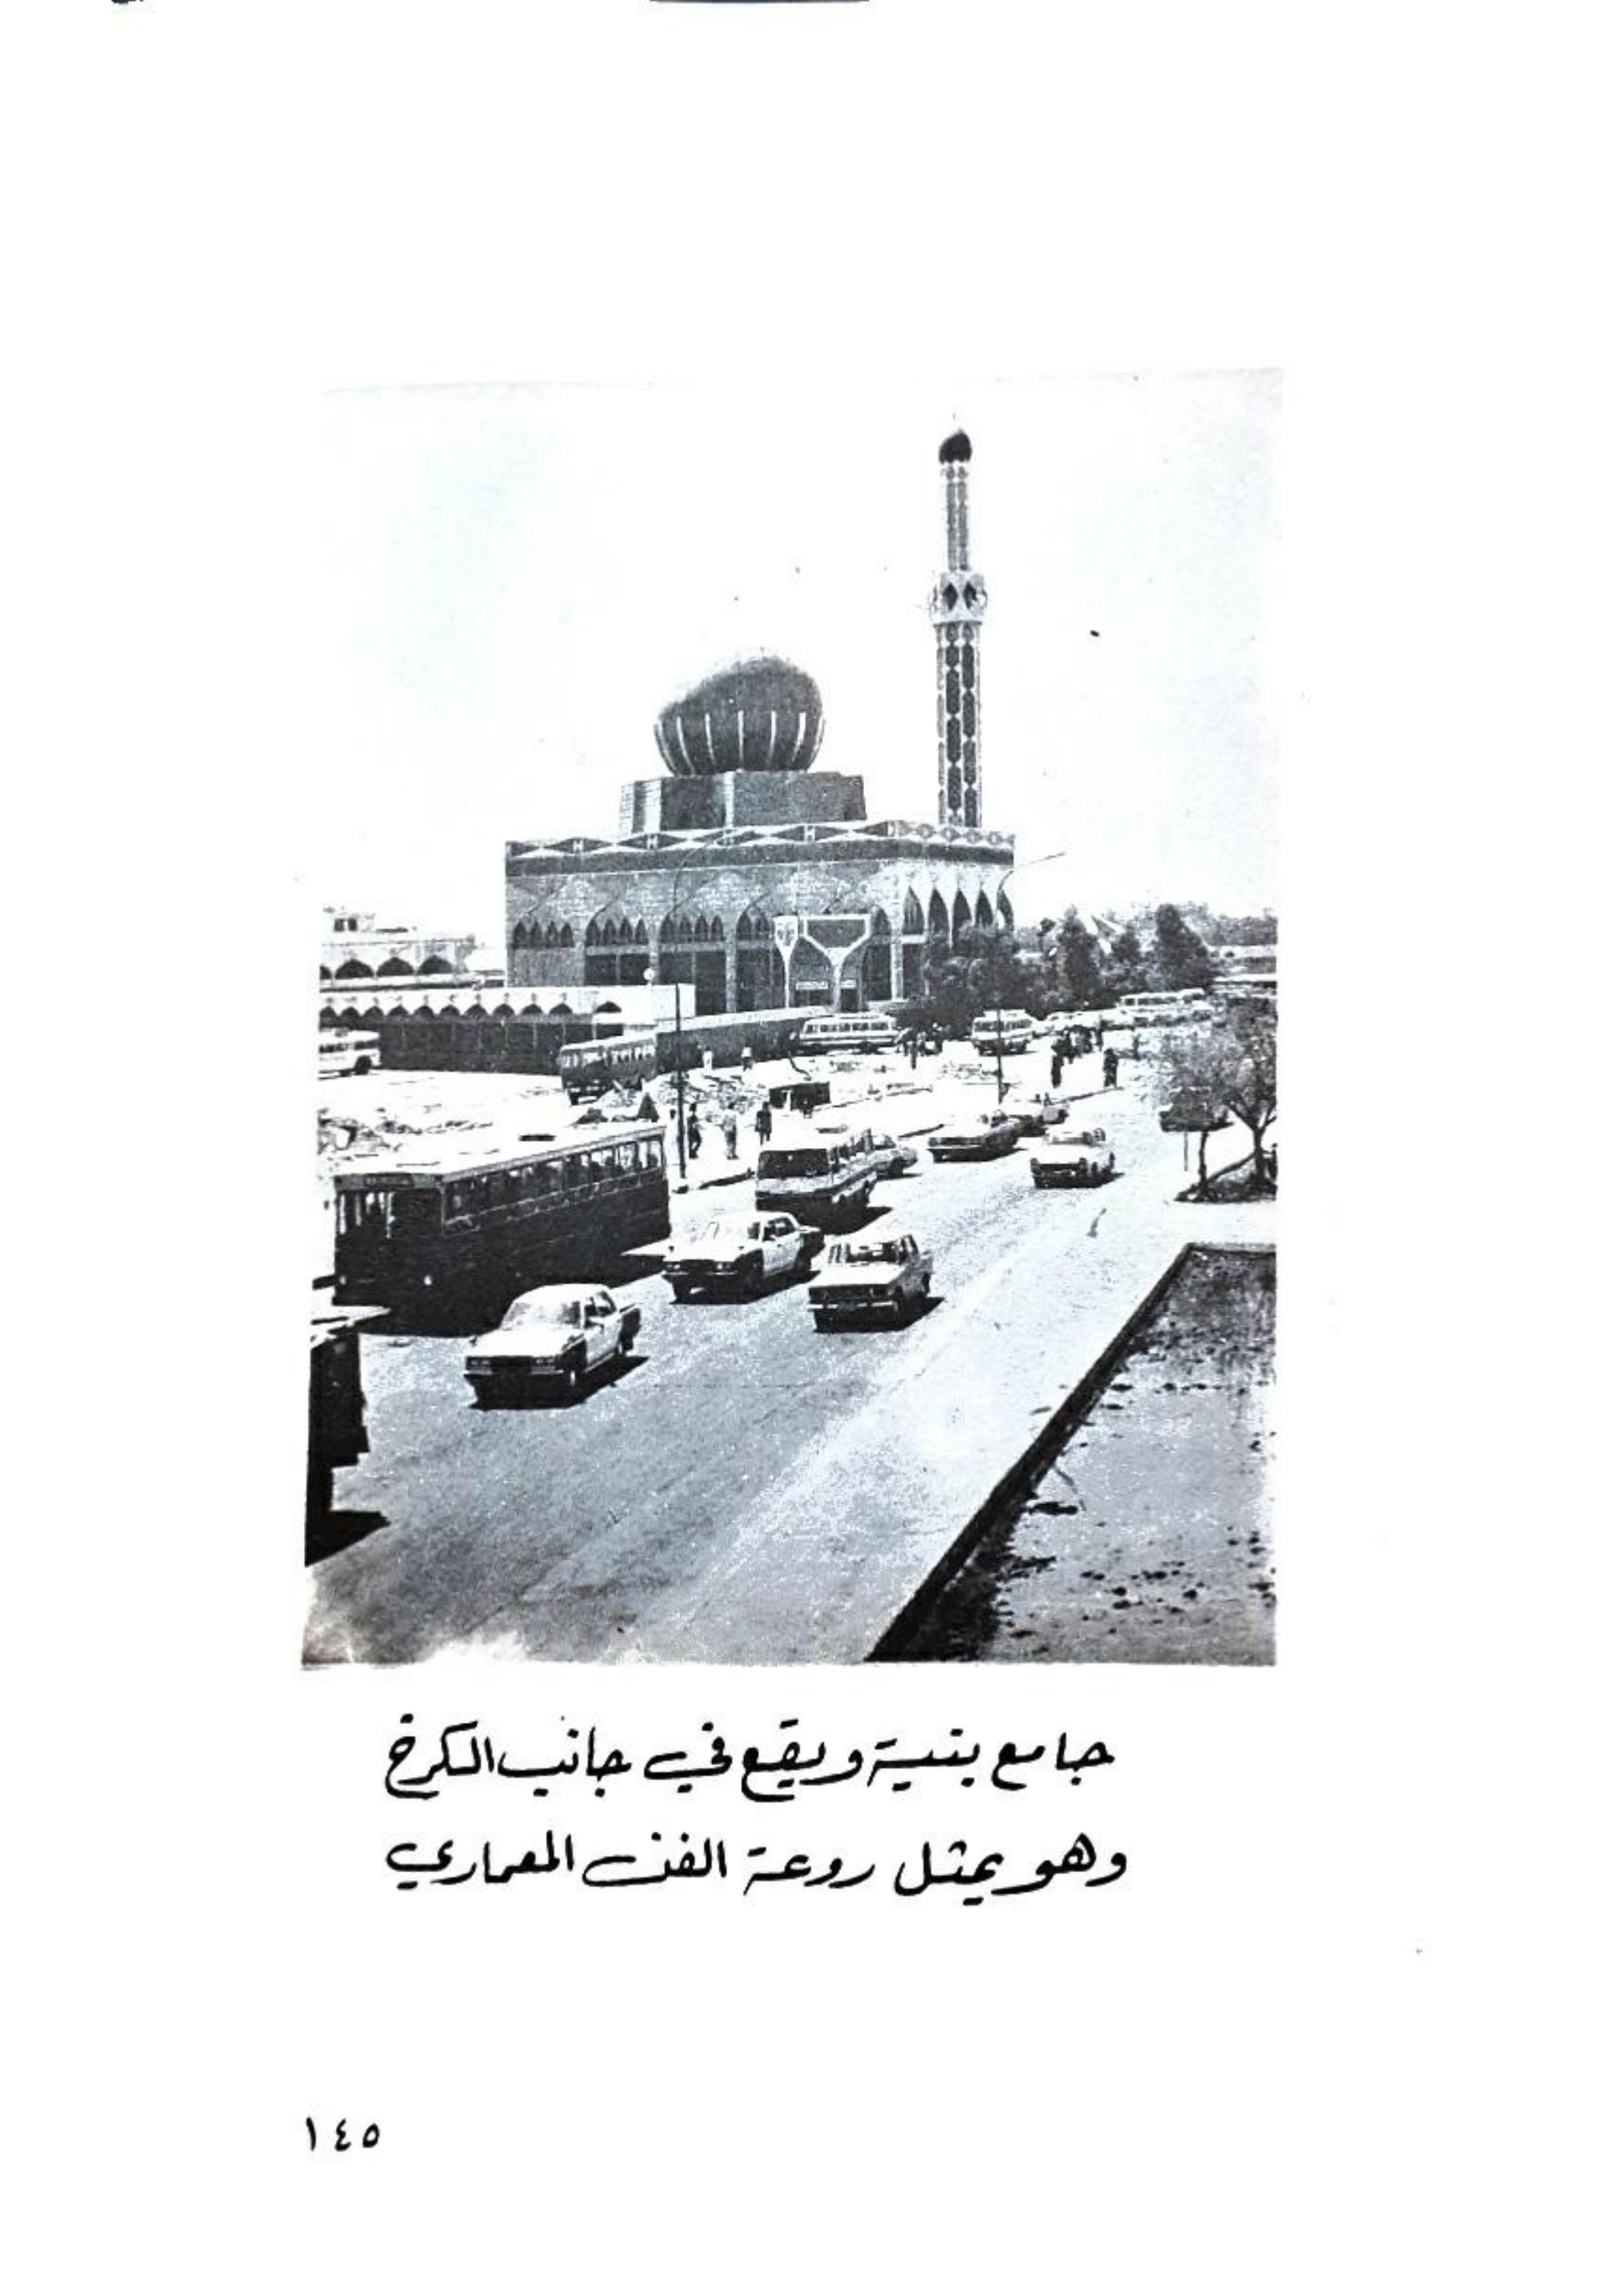 جامع بنية ويقع في جانب الكرخ
وهو يمثل روعة الفن المعماري
١٤٥